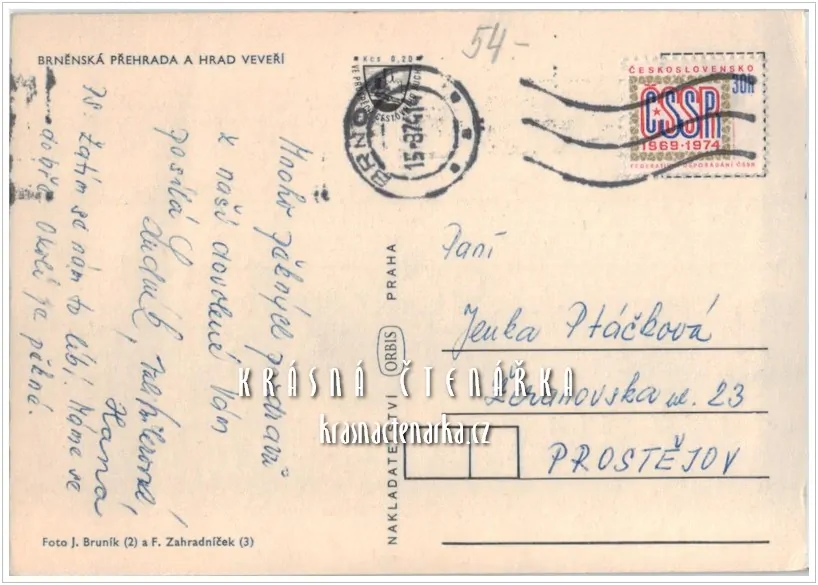 BRNĚNSKÁ PŘEHRADA A HRAD VEVEŘÍ
54-
Kčs 0,20
BRNO
15-8 74-1
ČESKOSLOVENSKO
30h
ČSSR
1969·1974
FEDERATIVNÍ USPOŘÁDÁNÍ ČSSR
Mnoho pěkných pozdravů
z naší dovolené Vám
posílá
Hana
Zatím se nám to líbí. Máme se
dobře. Okolí je pěkné.
NAKLADATELSTVÍ ORBIS PRAHA
Paní
Jenka Ptáčková
ul. 23
PROSTĚJOV
KRÁSNÁ ČTENÁŘKA
krasnactenarka.cz
Foto J. Bruník (2) a F. Zahradníček (3)